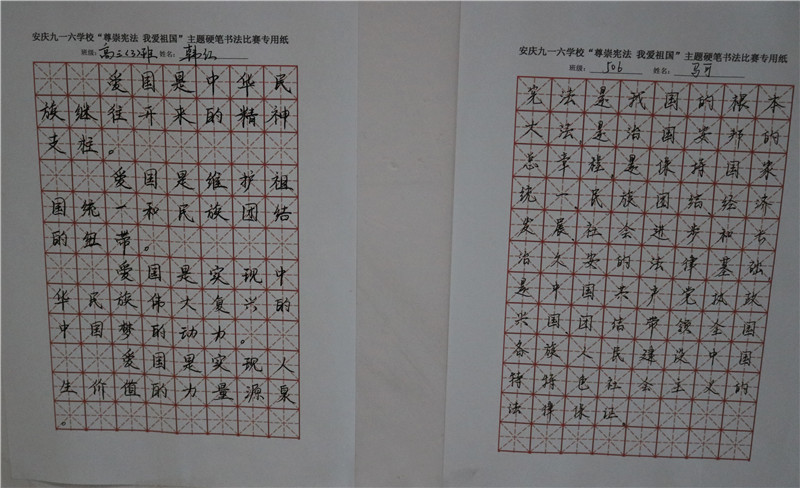 安庆九一六学校“尊崇宪法 我爱祖国”主题硬笔书法比赛专用纸
班级：高三(3)班 姓名：韩
爱国是中华民
族继往开来的精神
支柱。
爱国是维护祖
国统一和民族团结
的纽带。
爱国是实现中
华民族伟大复兴的
中国梦的动力。
爱国是实现人
生价值的力量源泉
。
安庆九一六学校“尊崇宪法 我爱祖国”主题硬笔书法比赛专用纸
班级：506 姓名：马可
宪法是我国的根本
大法,是治国安邦的
总章程,是保持国家
统一、民族团结、经济
发展、社会进步和长
治久安的法律基础,
是中国共产党执政
兴国、团结带领全国
各族人民建设中国
特特色社会主义的
法律保证。